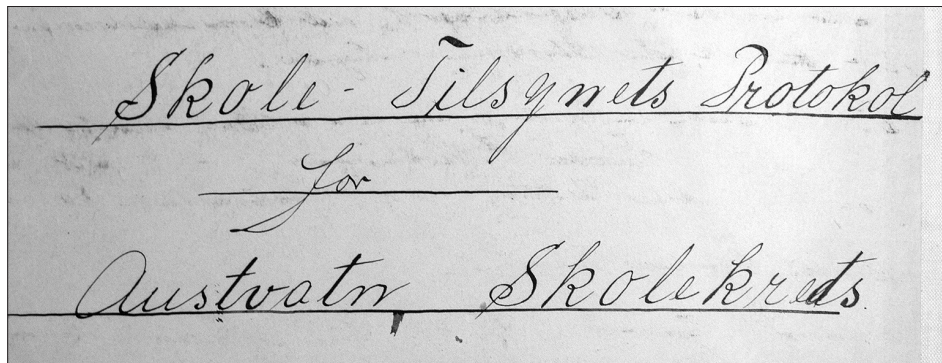 Skole-Tilsynets Protokol
for
Austvatn Skolekreds.